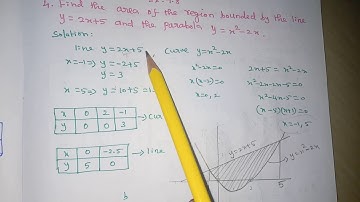 4. Find the area of the region bounded by the line
y = 2x+5 and the parabola y = x²-2x.
Solution:
line y=2x+5, curve y=x²-2x
x=-1⇒ y=-2+5
y=3
x=5⇒ y=10+5=1
x 0 2 -1
y 0 0 3
→ cur
x 0 -2.5
y 5 0
→ line
x²-2x=0
x(x-2)=0
x=0,2
2x+5 = x²-2x
x²-2x-2x-5=0
x²-4x-5=0
(x-5)(x+1)=0
x=-1,5
y=2x+5
y=x²-2x
5
b